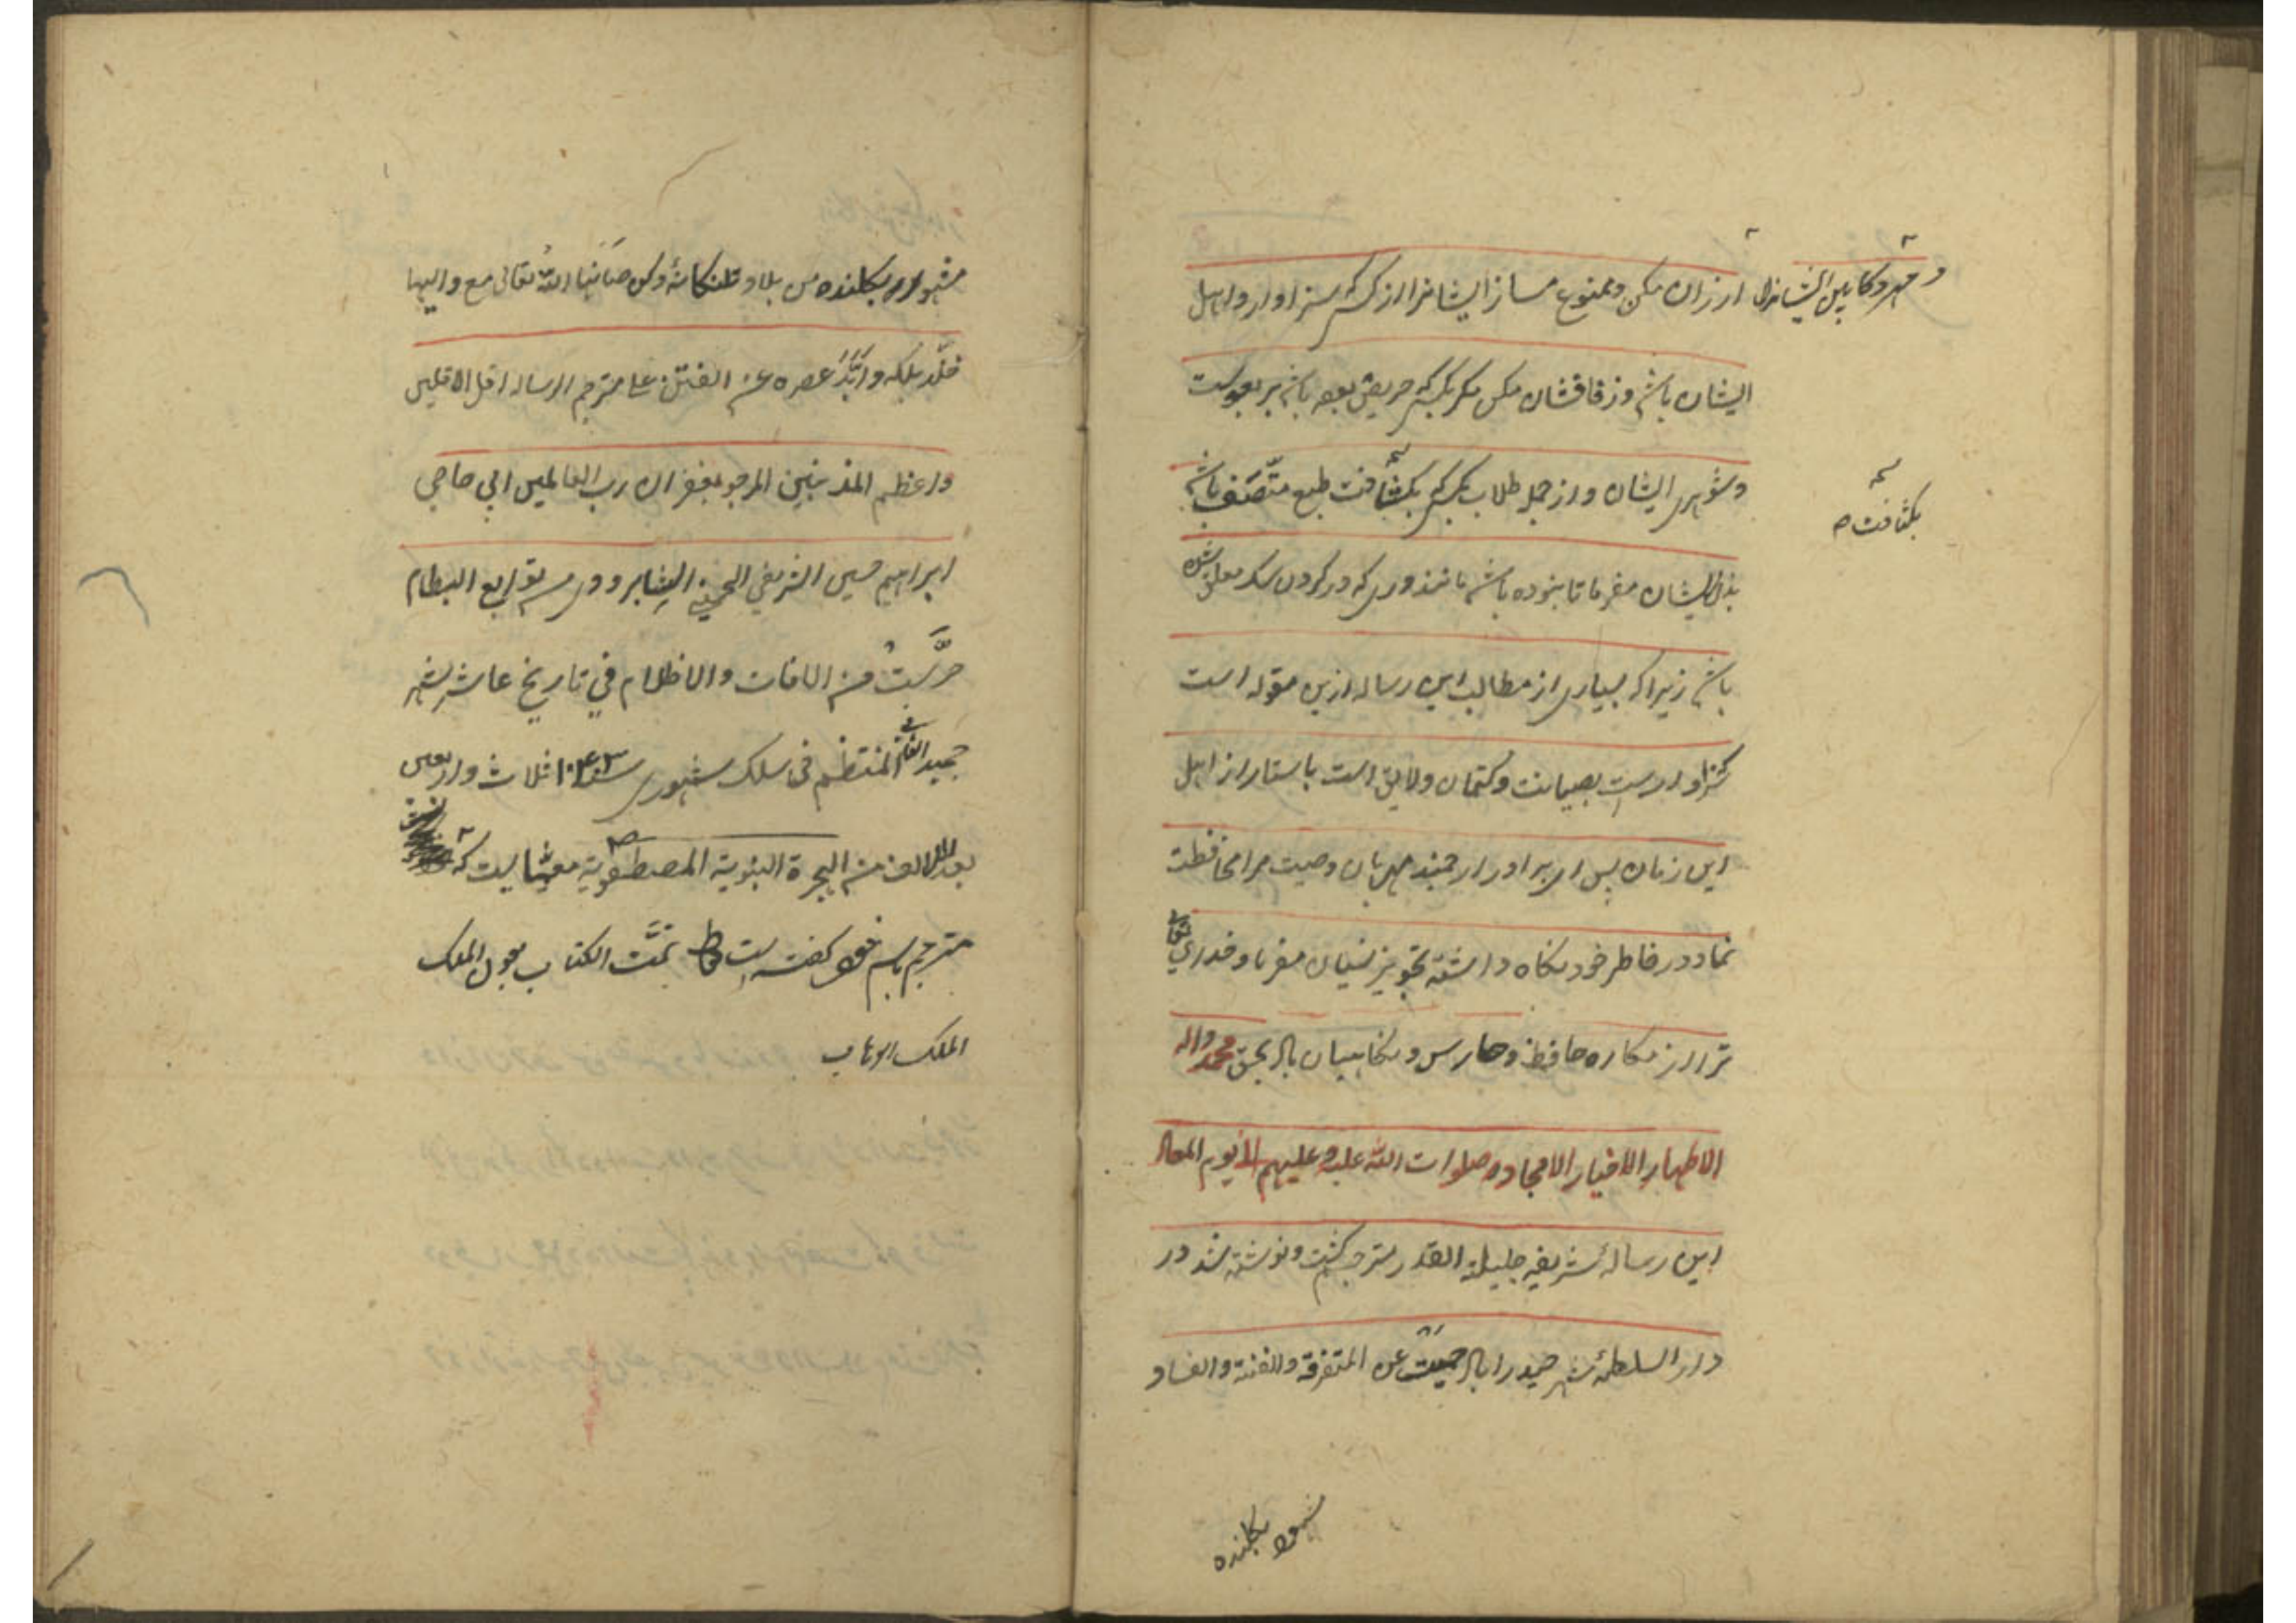 و مهر و کابین ایشانرا ارزان مکن و ممنوع مساز ایشانرا از کسیکه سزاوار و اهل
ایشان باشد و زفافشان مکن مگر بکسیکه حریص بوده باشد بر
و شوهری ایشان و از جمله طلاب کسیکه بکثافت طبع متصف باشد
بکثافت
ایشان مفرما تا نبوده باشی مانند دری که در گردن سک معلق شده
باشد زیرا که بسیاری از مطالب این رساله ازین مقوله است
که سزاوارست بصیانت و کتمان و لایق است باستار از اهل
این زمان پس ای برادر ارجمند مهربان وصیت مرا محافظت
نما و در خاطر خود نگاه داشته تجویز نسیان مفرما و خدای تعالی
ترا از مکاره حافظ و حارس و نگاهبان باد بحق محمد واله
الاطهار الاخیار الامجاد صلوات الله علیه وعلیهم الی یوم المعاد
این رساله شریفه جلیلة القدر مترجم گشت و نوشته شد در
دار السلطنه شهر حیدراباد حمیت عن المتفرقة والفتنة والفساد
مشهور بکلنده
مشهور بکلنده من بلاد تلنکانه دکن صانها الله تعالی مع والیها
خلد ملکه وابد عصره عن الفتن علی مترجم الرساله اقل الاقلین
واعظم المذنبین المرجو بغفران رب العالمین ابی حاجی
ابراهیم حسین الشریفی الحسینی توابع البسطام
حرست من الافات والاظلام فی تاریخ عاشر شهر
جمید الثانی المنتظم فی سلک شهور سنه ۱۰۴۳ ثلاث واربعین
بعد الالف من الهجرة النبویة المصطفویة معمائیست که
مترجم باسم خود گفته است تمت الکتاب بعون الملک
الملک الوهاب